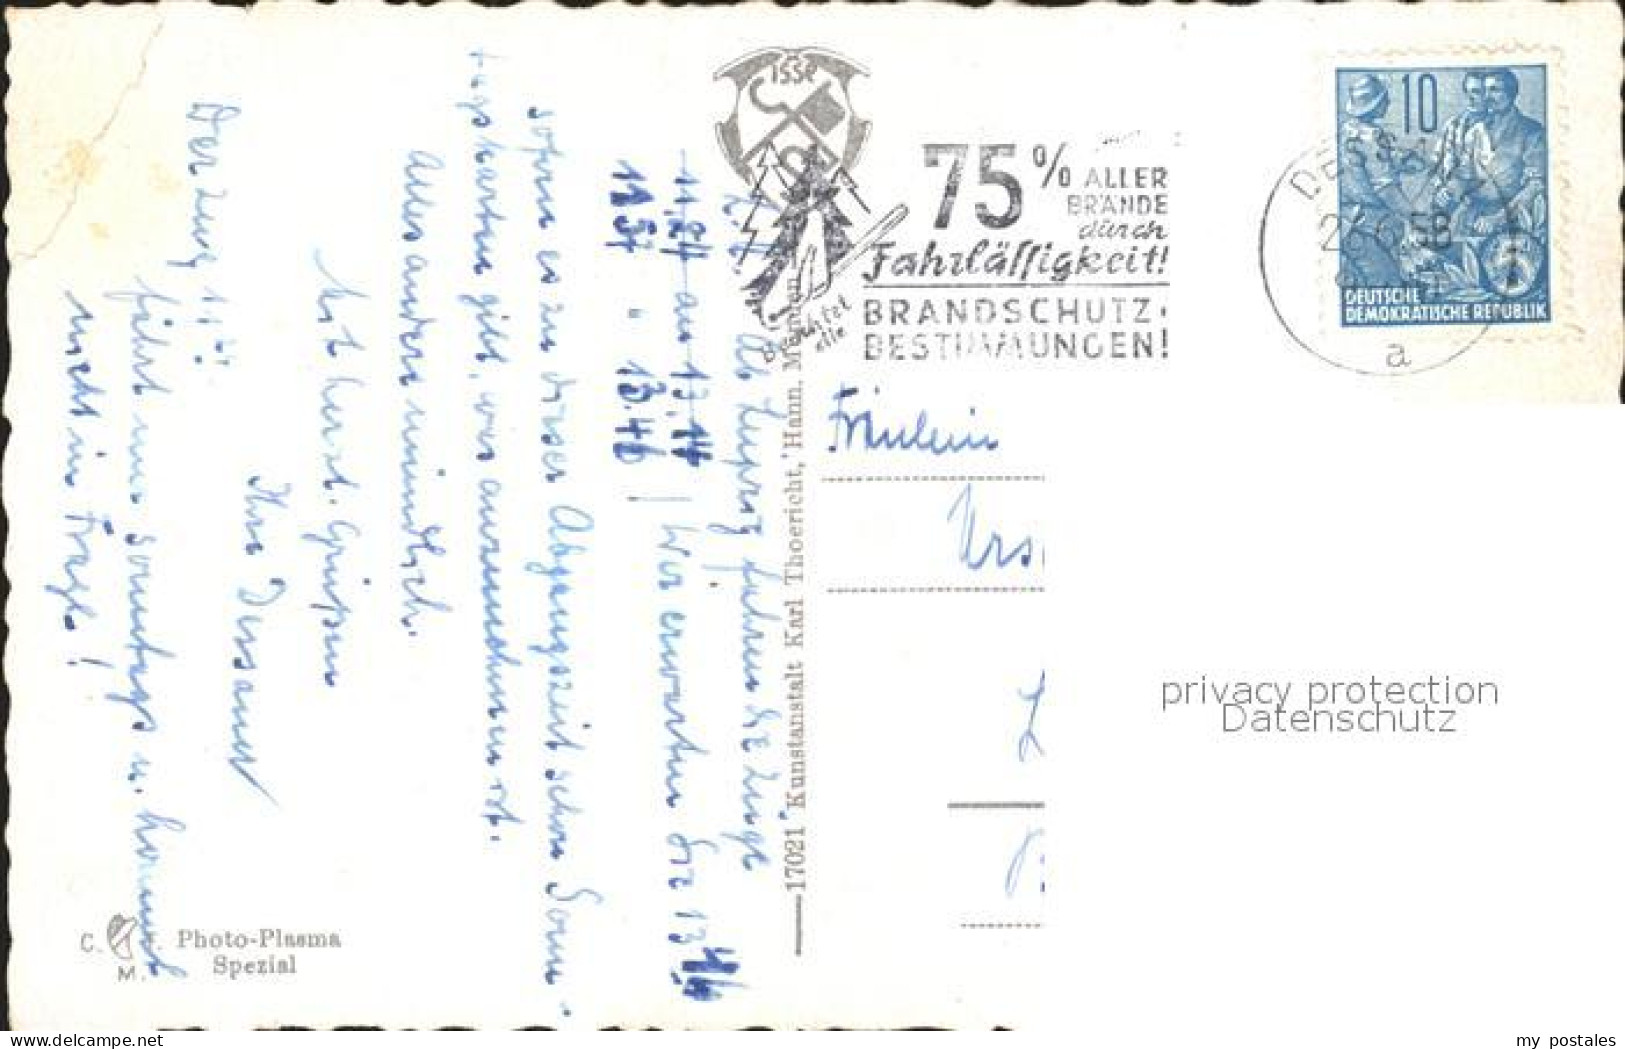 z. Zt. ab Leipzig fahren die Züge
11,24 an 13,14 | Wir erwarten Sie 13 46
11 57 " 13.46
sofern es zu dieser Abgangszeit schon Sonn-
tagskarten gibt, was anzunehmen ist.
Alles andere mündlich.
Mit herzl. Grüßen
Ihre Dessauer
Der Zug
fährt nur sonntags u. kommt
nicht in Frage!
C. M.
Photo-Plasma
Spezial
17021 Kunstanstalt Karl Thoericht, Hann. Münden
75% ALLER
BRÄNDE
durch
Fahrlässigkeit!
Beachtet
alle
BRANDSCHUTZ-
BESTIMMUNGEN!
DESSAU
58
a
10
5
DEUTSCHE
DEMOKRATISCHE REPUBLIK
Fräulein
Urs
privacy protection
Datenschutz
my postales
www.delcampe.net